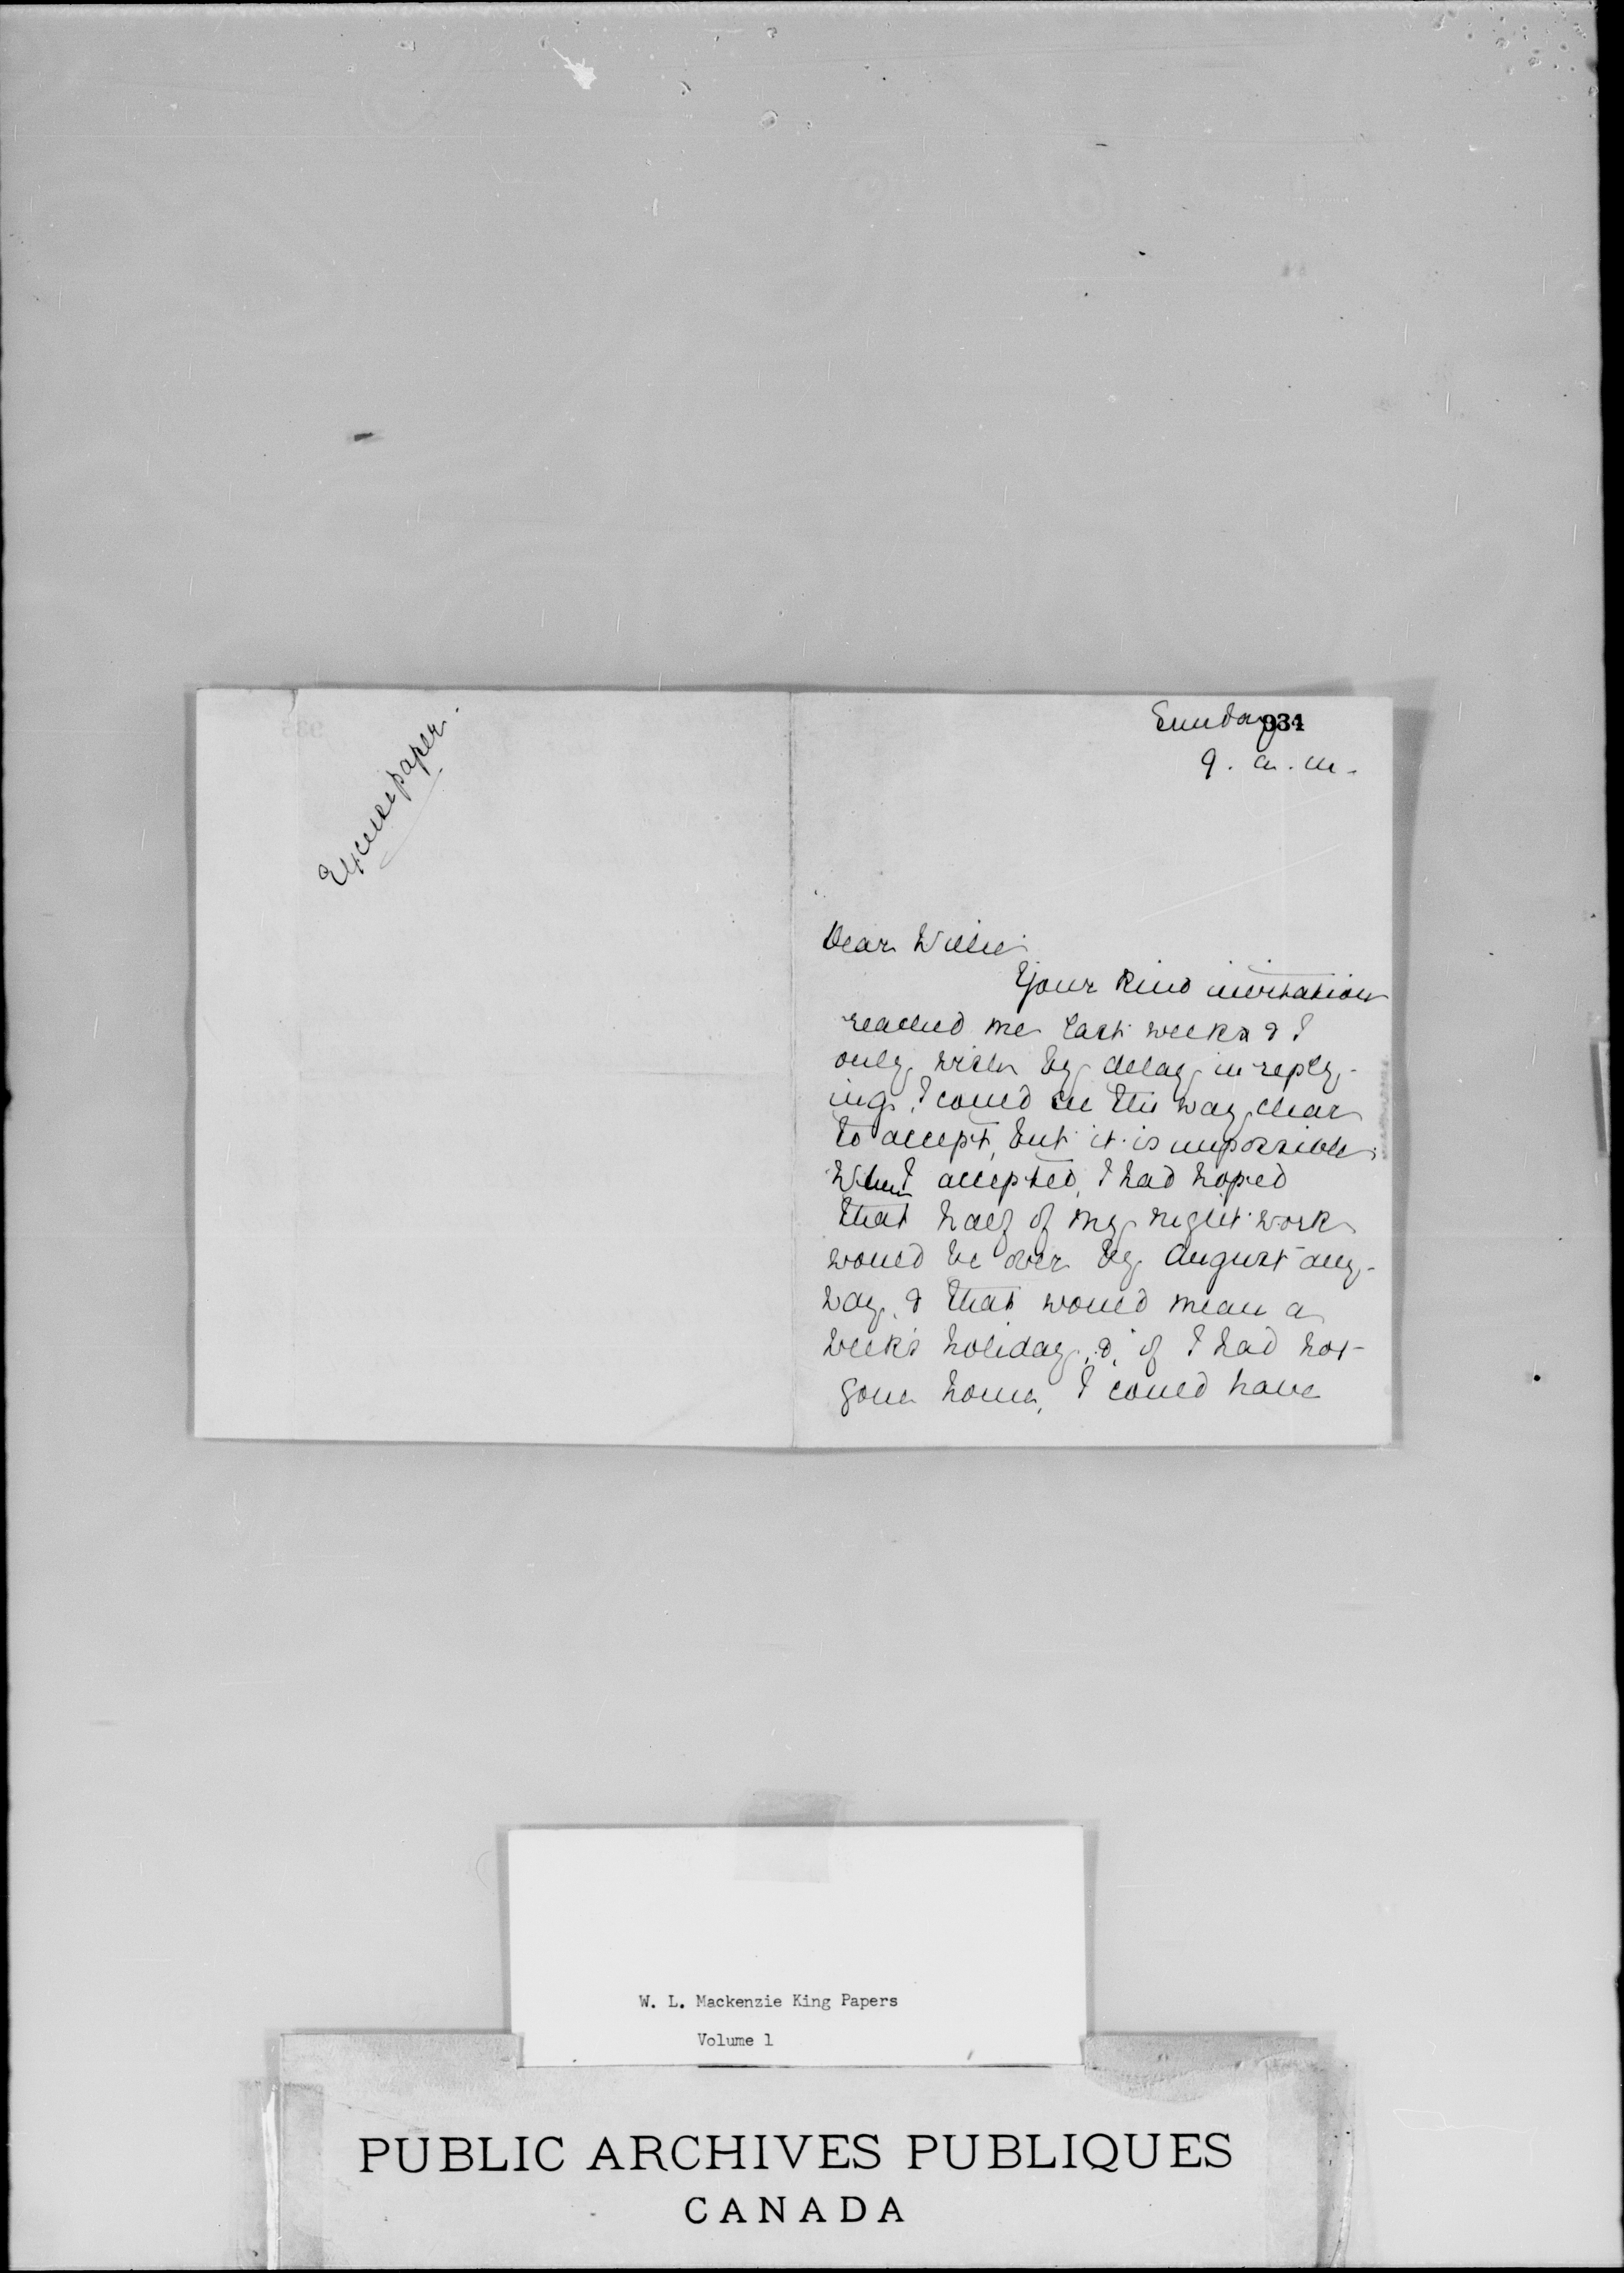 Excuse paper.
Sunday
934
9. a.m.
Dear Willie
Your kind invitation
reached me last week & I
only wish by delay in reply-
ing, I could see the way clear
to accept, but it is impossible.
When I accepted, I had hoped
that half of my night work
would be over by August any-
way, & that would mean a
week's holiday, & if I had not
gone home, I could have
W. L. Mackenzie King Papers
Volume 1
PUBLIC ARCHIVES PUBLIQUES
CANADA